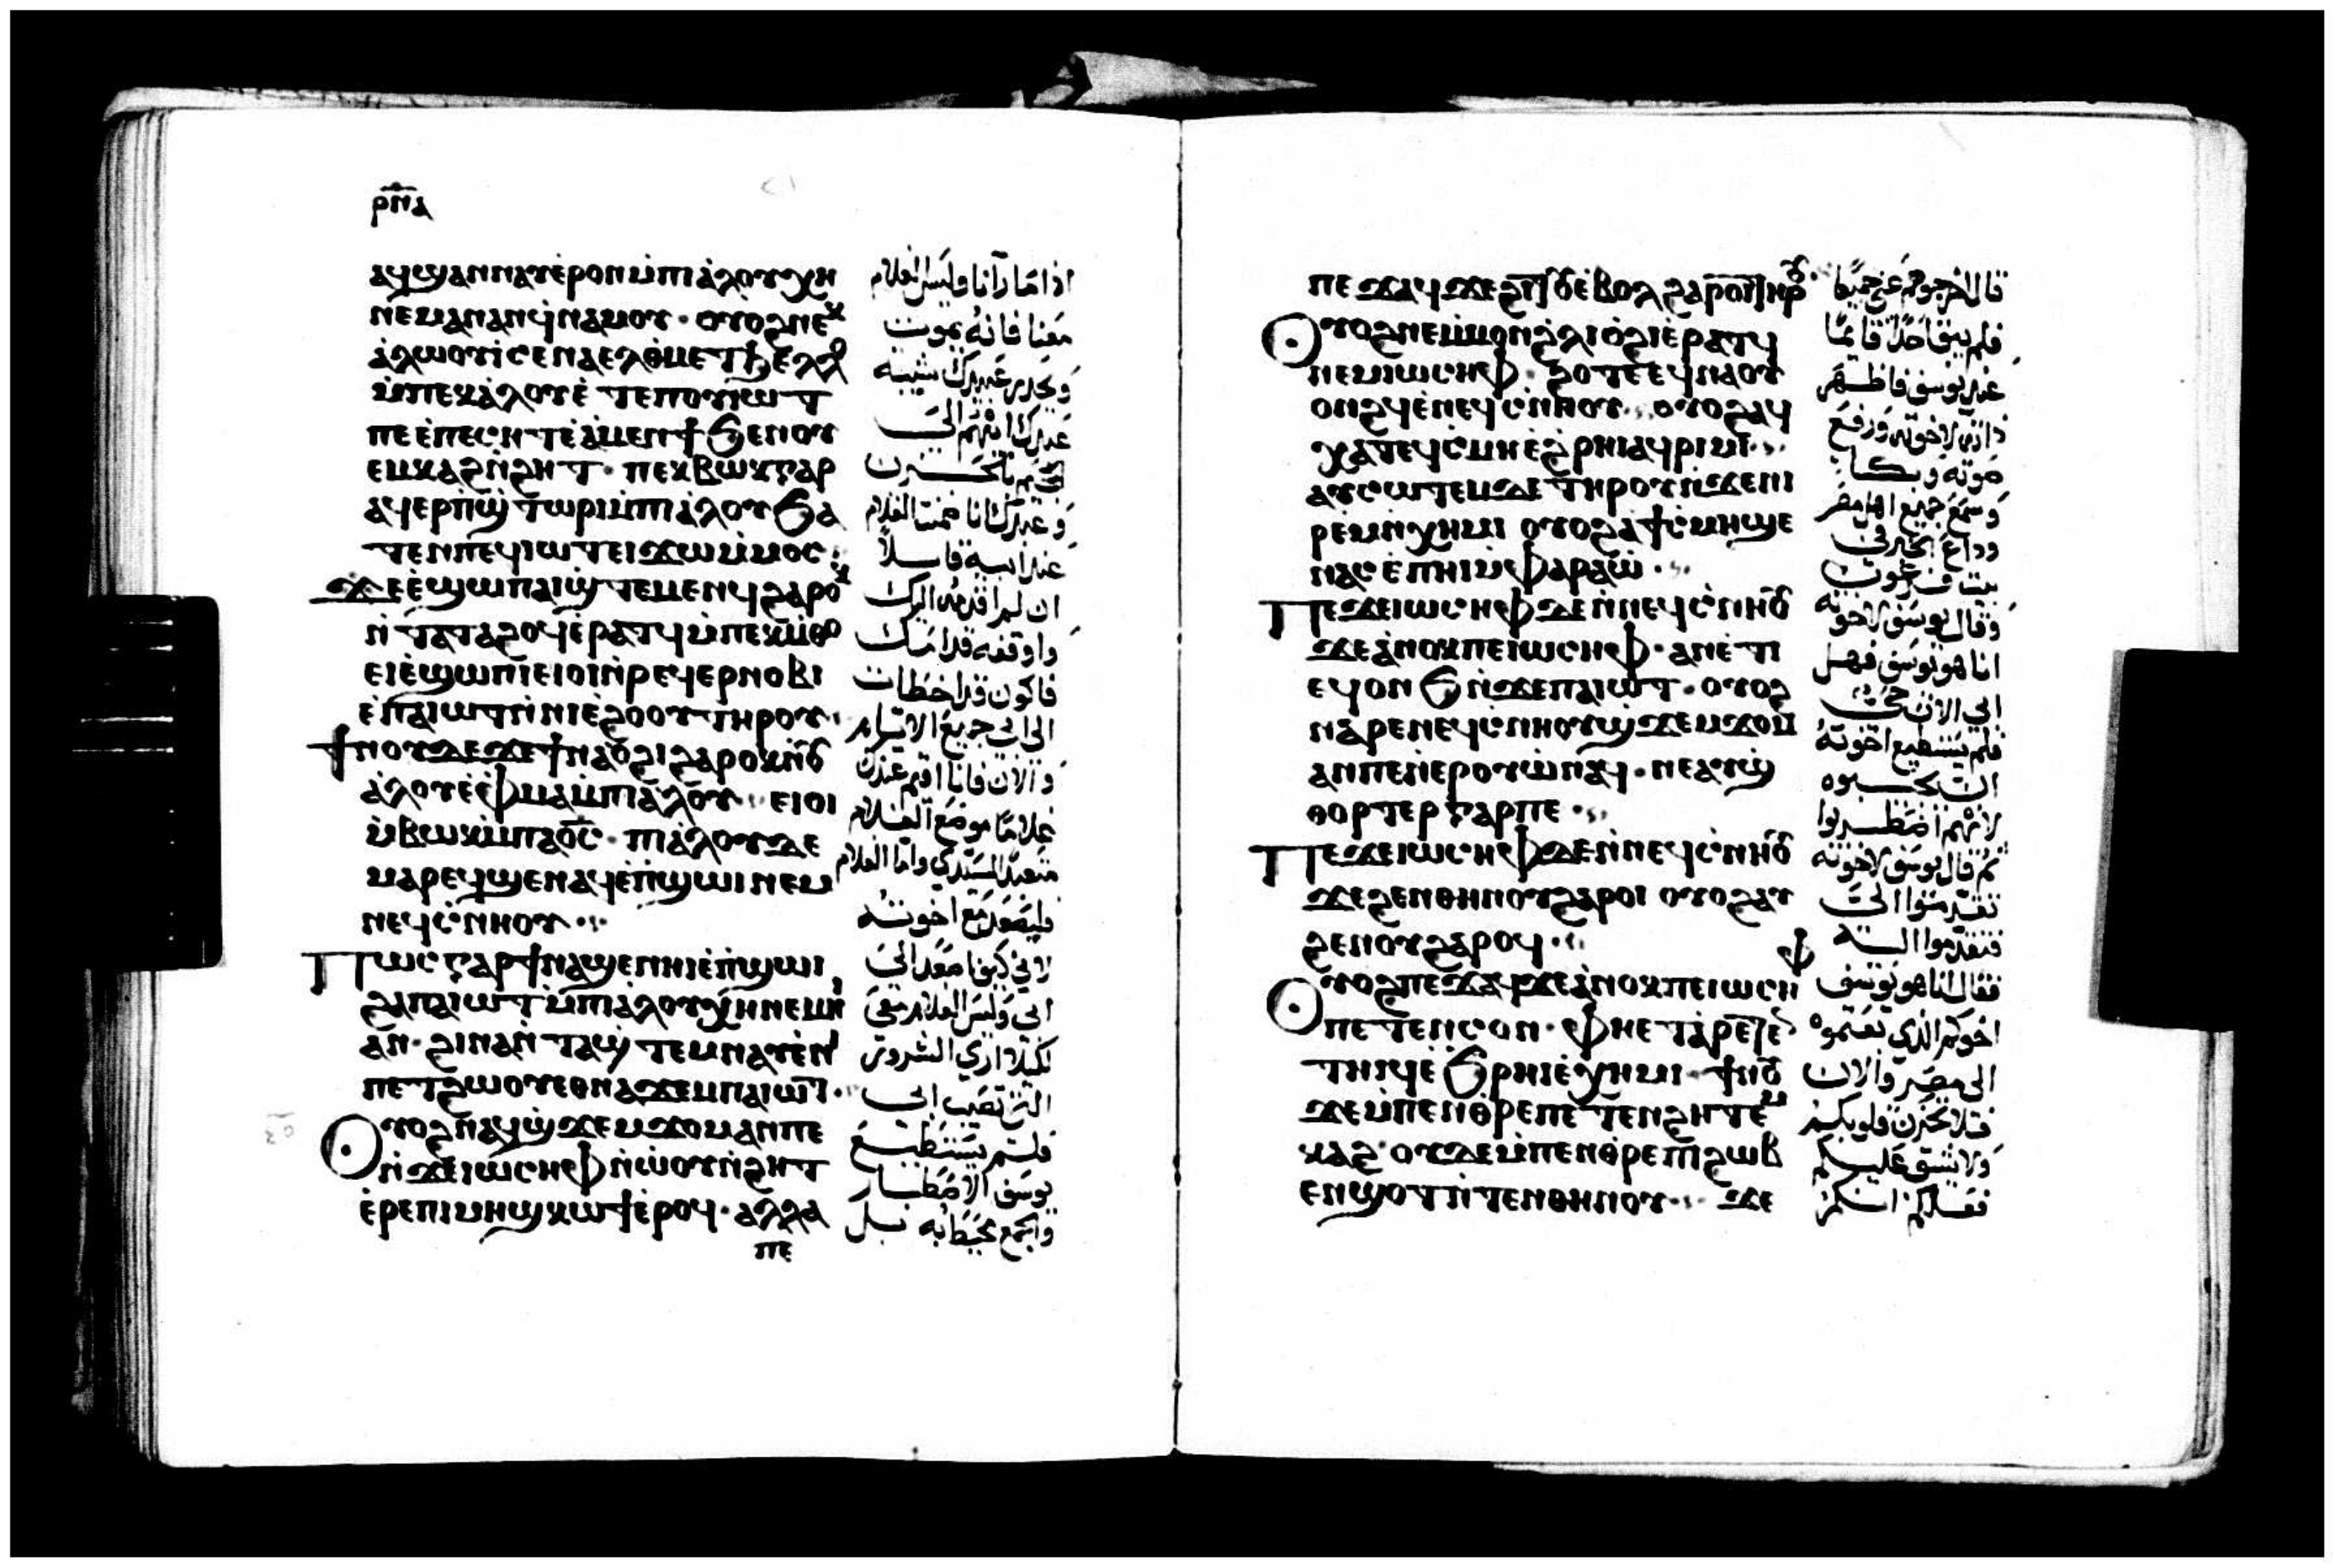 ⲣⲛⲁ
ⲁϥϣⲁⲛⲛⲁⲩⲉ̀ⲣⲟⲛ ⲙ̀ⲡⲓⲁ̀ⲗⲟⲩ ⲭⲏ
ⲛⲉⲙⲁⲛ ⲁⲛ ϥ̀ⲛⲁⲙⲟⲩ · ⲟⲩⲟϩ ⲛⲉⲕ
ⲁ̀ⲗⲱⲟⲩⲓ̀ ⲥⲉⲛⲁⲉⲗ
ⲙ̀ⲡⲉⲕⲁ̀ⲗⲟⲩ ⲉ̀ⲧⲉ ⲡⲉⲛⲓⲱⲧ
ⲡⲉ ⲉ̀ⲡⲉⲥⲏⲧ ⲉ̀ⲁ̀ⲙⲉⲛϯ ϧⲉⲛ ⲟⲩ
ⲉⲙⲕⲁϩ ⲛ̀ϩⲏⲧ · ⲡⲉⲕⲃⲱⲕ ⲅⲁⲣ
ⲁϥⲉⲣⲡ̀ϣ̀ⲧⲱⲣⲓ ⲙ̀ⲡⲓⲁ̀ⲗⲟⲩ ϧⲁ
ⲧⲉⲛ ⲡⲉϥⲓⲱⲧ ⲉⲓϫⲱ ⲙ̀ⲙⲟⲥ
ϫⲉ ⲉ̀ϣⲱⲡ ⲁⲓϣ̀ⲧⲉⲙⲉⲛϥ ϩⲁⲣⲟⲕ
ⲛ̀ⲧⲁⲧⲁϩⲟϥ ⲉ̀ⲣⲁⲧϥ ⲙ̀ⲡⲉⲕⲙ̀ⲑⲟ
ⲉⲓⲉ̀ϣⲱⲡⲓ ⲉⲓⲟⲓ ⲛ̀ⲣⲉϥⲉⲣⲛⲟⲃⲓ
ⲉ̀ⲡⲁⲓⲱⲧ ⲛ̀ⲛⲓⲉ̀ϩⲟⲟⲩ ⲧⲏⲣⲟⲩ ·
ϯⲛⲟⲩ ϫⲉ ϫⲉ ϯⲛⲁⲟ̀ϩⲓ ϩⲁⲣⲟⲕ
ⲁ̀ⲗⲟⲩ ⲉ̀ⲫⲙⲁ ⲙ̀ⲡⲓⲁ̀ⲗⲟⲩ · ⲉⲓⲟⲓ
ⲙ̀ⲃⲱⲕ ⲙ̀ⲡⲁⲟ̅ⲥ̅ · ⲡⲓⲁ̀ⲗⲟⲩ ⲇⲉ
ⲙⲁⲣⲉϥϣⲉⲛⲁϥ ⲉ̀ⲡ̀ϣⲱⲓ ⲛⲉⲙ
ⲛⲉϥⲥ̀ⲛⲏⲟⲩ ·
ⲡⲱⲥ ⲅⲁⲣ ϯⲛⲁϣⲉⲛⲏⲓ ⲉ̀ⲡ̀ϣⲱⲓ
ϩⲁ ⲡⲁⲓⲱⲧ ⲙ̀ⲡⲓⲁ̀ⲗⲟⲩ ⲭⲏ ⲛⲉⲙⲏⲓ
ⲁⲛ · ϩⲓⲛⲁ ⲛ̀ⲧⲁϣ̀ⲧⲉⲙⲛⲁⲩ ⲉ̀ⲛⲓ
ⲡⲉⲧϩⲱⲟⲩ ⲉⲑⲛⲁϫⲉⲙ ⲡⲁⲓⲱⲧ ·
ⲟⲩⲟϩ ⲛⲁϥϣ̀ϫⲉⲙϫⲟⲙ ⲁⲛ ⲡⲉ
ⲛ̀ϫⲉ ⲓⲱⲥⲏⲫ ⲛ̀ⲱ̀ⲟⲩⲛ̀ϩⲏⲧ
ⲉ̀ⲣⲉ ⲡⲓⲙⲏϣ ⲕⲱϯ ⲉ̀ⲣⲟϥ · ⲁⲗⲗⲁ
ⲡⲉ
اذا ما رآنا وليس الغلام
معنا فانه يموت
ويحدر عبيدك شيبة
عبدك ابيهم الى
الجحيم بالحزن
وعبدك انا ضمنت الغلام
عند ابيه قائلاً
ان لم اقدمه اليك
واوقفه قدامك
فاكون قد اخطات
الى ابى جميع الايام
والان فانا اقيم عندك
غلاما موضع الغلام
متعبداً لسيدي واما الغلام
فليصعد مع اخوته
لانى كيف اصعد الى
ابى وليس الغلام معى
لكيلا ارى الشرور
التى تصيب ابى
فلم يستطيع
يوسف الاصطبار
والجمع يحيط به بل
ⲡⲉϫⲁϥ ϫⲉ ⲉ̀ⲃⲟⲗ ϩⲁⲣⲟⲓ
ⲟⲩⲟϩ ⲛⲉ ⲙ̀ⲙⲟⲛ ϩ̀ⲗⲓ ⲟ̀ϩⲓ ⲉ̀ⲣⲁⲧϥ
ⲛⲉⲙ ⲓⲱⲥⲏⲫ · ϩⲟⲧⲉ ⲉϥⲛⲁⲟⲩ
ⲟⲛϩϥ ⲉ̀ⲛⲉϥⲥ̀ⲛⲏⲟⲩ · ⲟⲩⲟϩ ⲁϥ
ⲭⲁ ⲧⲉϥⲥ̀ⲙⲏ ⲉ̀ϩ̀ⲣⲏⲓ ⲁϥⲣⲓⲙⲓ ·
ⲁⲩⲥⲱⲧⲉⲙ ⲇⲉ ⲧⲏⲣⲟⲩ ⲛ̀ϫⲉ ⲛⲓ
ⲣⲉⲙⲛ̀ⲭⲏⲙⲓ ⲟⲩⲟϩ ⲁ ϯⲥ̀ⲙⲏ ϣⲉ
ⲛⲁⲥ ⲉ̀ⲡⲏⲓ ⲙ̀ⲫⲁⲣⲁⲱ̀ ·
ⲡⲉϫⲉ ⲓⲱⲥⲏⲫ ⲇⲉ ⲛ̀ⲛⲉϥⲥ̀ⲛⲏⲟⲩ
ϫⲉ ⲁ̀ⲛⲟⲕ ⲡⲉ ⲓⲱⲥⲏⲫ · ⲁⲛ ⲉ̀ⲧⲓ
ϥⲟⲛϧ ⲛ̀ϫⲉ ⲡⲁⲓⲱⲧ · ⲟⲩⲟϩ
ⲛⲁⲣⲉ ⲛⲉϥⲥ̀ⲛⲏⲟⲩ ϣ̀ϫⲉⲙϫⲟⲙ
ⲁⲛ ⲡⲉ ⲛ̀ⲉⲣⲟⲩⲱ̀ ⲛⲁϥ · ⲛⲉ ⲁⲩϣ̀
ⲑⲟⲣⲧⲉⲣ ⲅⲁⲣ ⲡⲉ ·
ⲡⲉϫⲉ ⲓⲱⲥⲏⲫ ⲇⲉ ⲛ̀ⲛⲉϥⲥ̀ⲛⲏⲟⲩ
ϫⲉ ϧⲉⲛ ⲑⲏⲛⲟⲩ ϩⲁⲣⲟⲓ ⲟⲩⲟϩ ⲁⲩ
ϧⲉⲛⲟⲩ ϩⲁⲣⲟϥ ·
ⲟⲩⲟϩ ⲡⲉϫⲁϥ ϫⲉ ⲁ̀ⲛⲟⲕ ⲡⲉ ⲓⲱⲥⲏⲫ
ⲡⲉⲧⲉⲛⲥⲟⲛ · ⲫⲏⲉⲧⲁⲣⲉⲧⲉⲛ
ⲧⲏⲓϥ ⲉ̀ϧ̀ⲣⲏⲓ ⲉ̀ⲭⲏⲙⲓ · ϯⲛⲟⲩ
ϫⲉ ⲙ̀ⲡⲉⲛⲑ̀ⲣⲉ ⲡⲉⲧⲉⲛϩⲏⲧ ⲉⲙ
ⲕⲁϩ · ⲟⲩϫⲉ ⲙ̀ⲡⲉⲛⲑ̀ⲣⲉ ⲡⲓϩⲱⲃ
ⲉⲛϣⲟⲧ ⲛ̀ⲧⲉⲛ ⲑⲏⲛⲟⲩ · ϫⲉ
قال اخرجوهم عنى جميعا
فلم يبق احدا قائما
عند يوسف فاظهر
ذاته لاخوته ورفع
صوته وبكا
وسمع جميع اهل مصر
وذاع الخبر فى
بيت فرعون
وقال يوسف لاخوته
انا هو يوسف فهل
ابى الان حى
فلم يستطيع اخوته
ان يجيبوه
لانهم اضطربوا
ثم قال يوسف لاخوته
تقدموا الى
فتقدموا اليه
فقال انا هو يوسف
اخوكم الذى بعتموه
الى مصر والان
فلا تحزن قلوبكم
ولا يشق عليكم